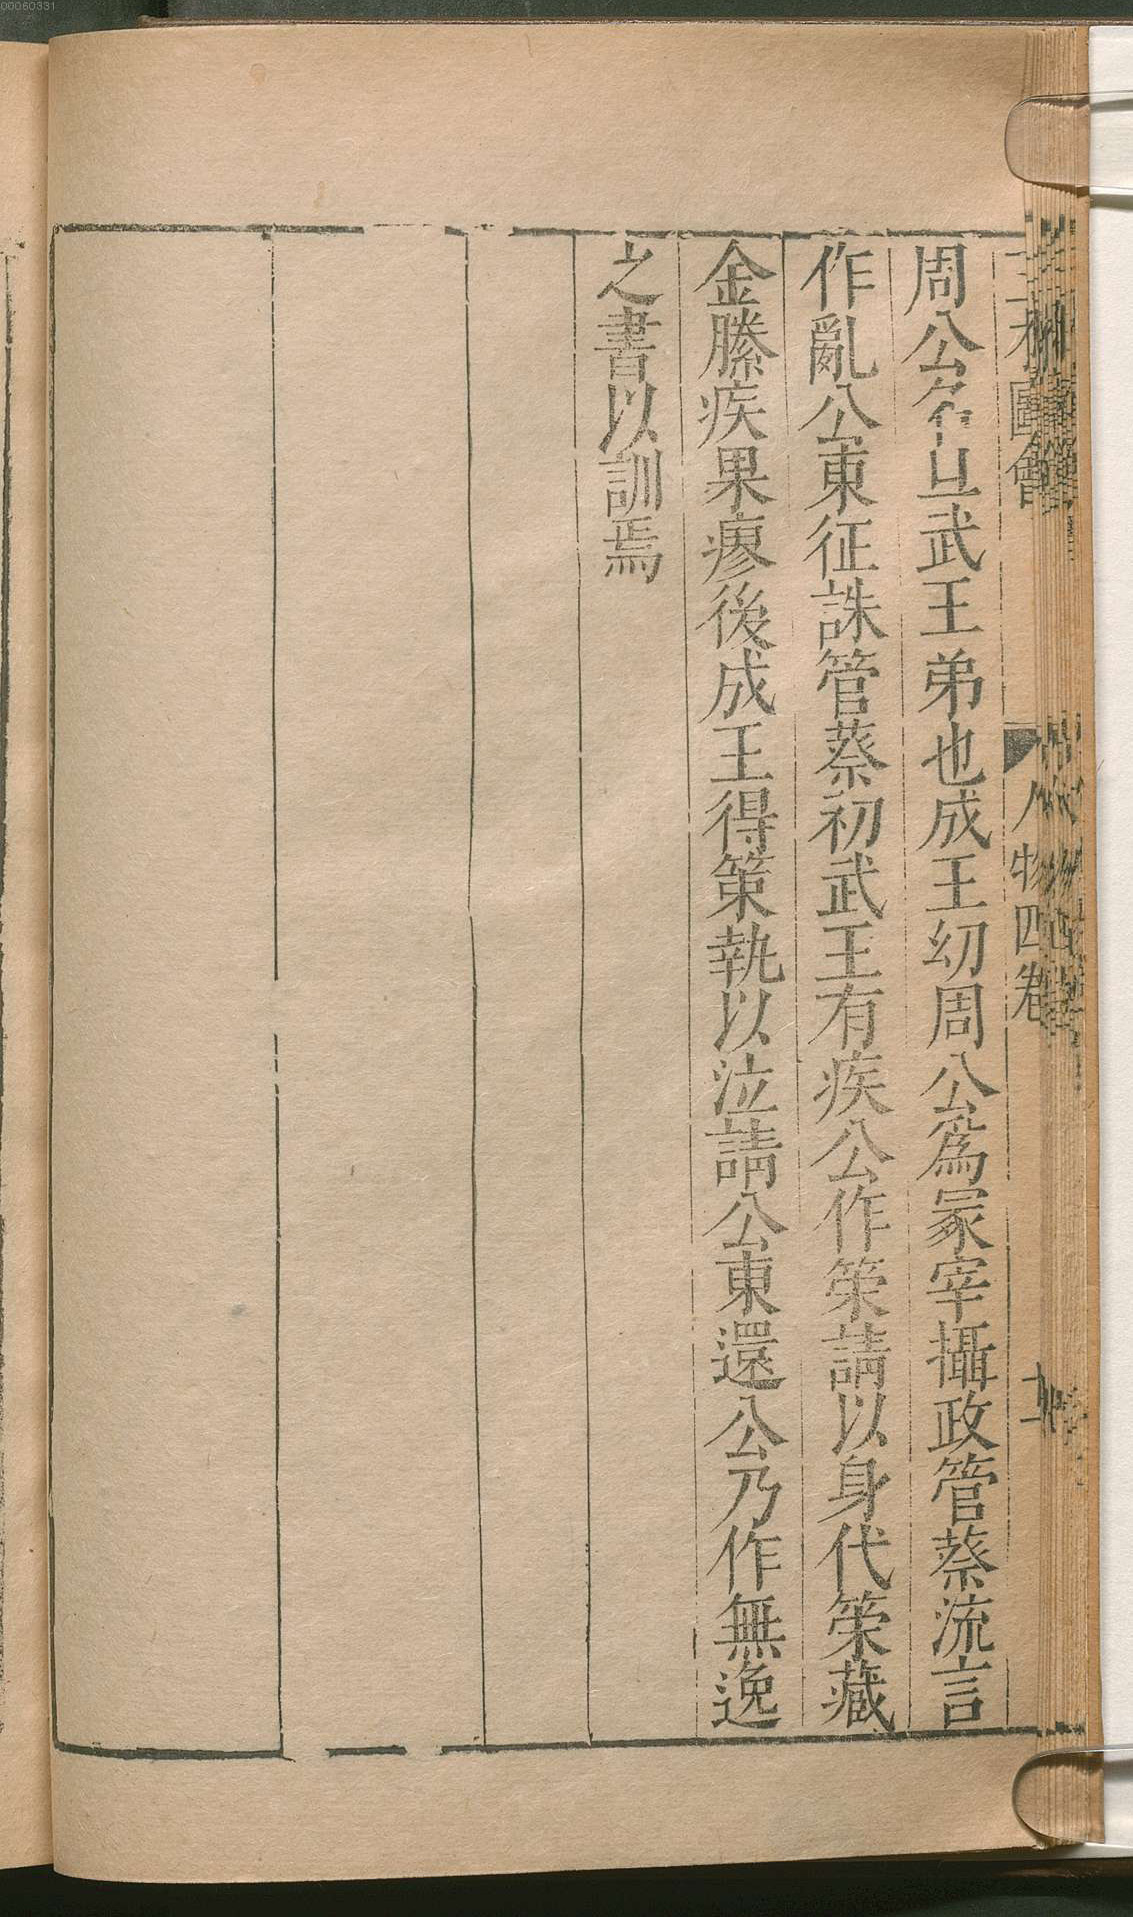 00060331
三才圖會 人物四卷
周公名旦武王弟也成王幼周公爲冢宰攝政管蔡流言
作亂公東征誅管蔡初武王有疾公作策請以身代策藏
金縢疾果瘳後成王得策執以泣請公東還公乃作無逸
之書以訓焉